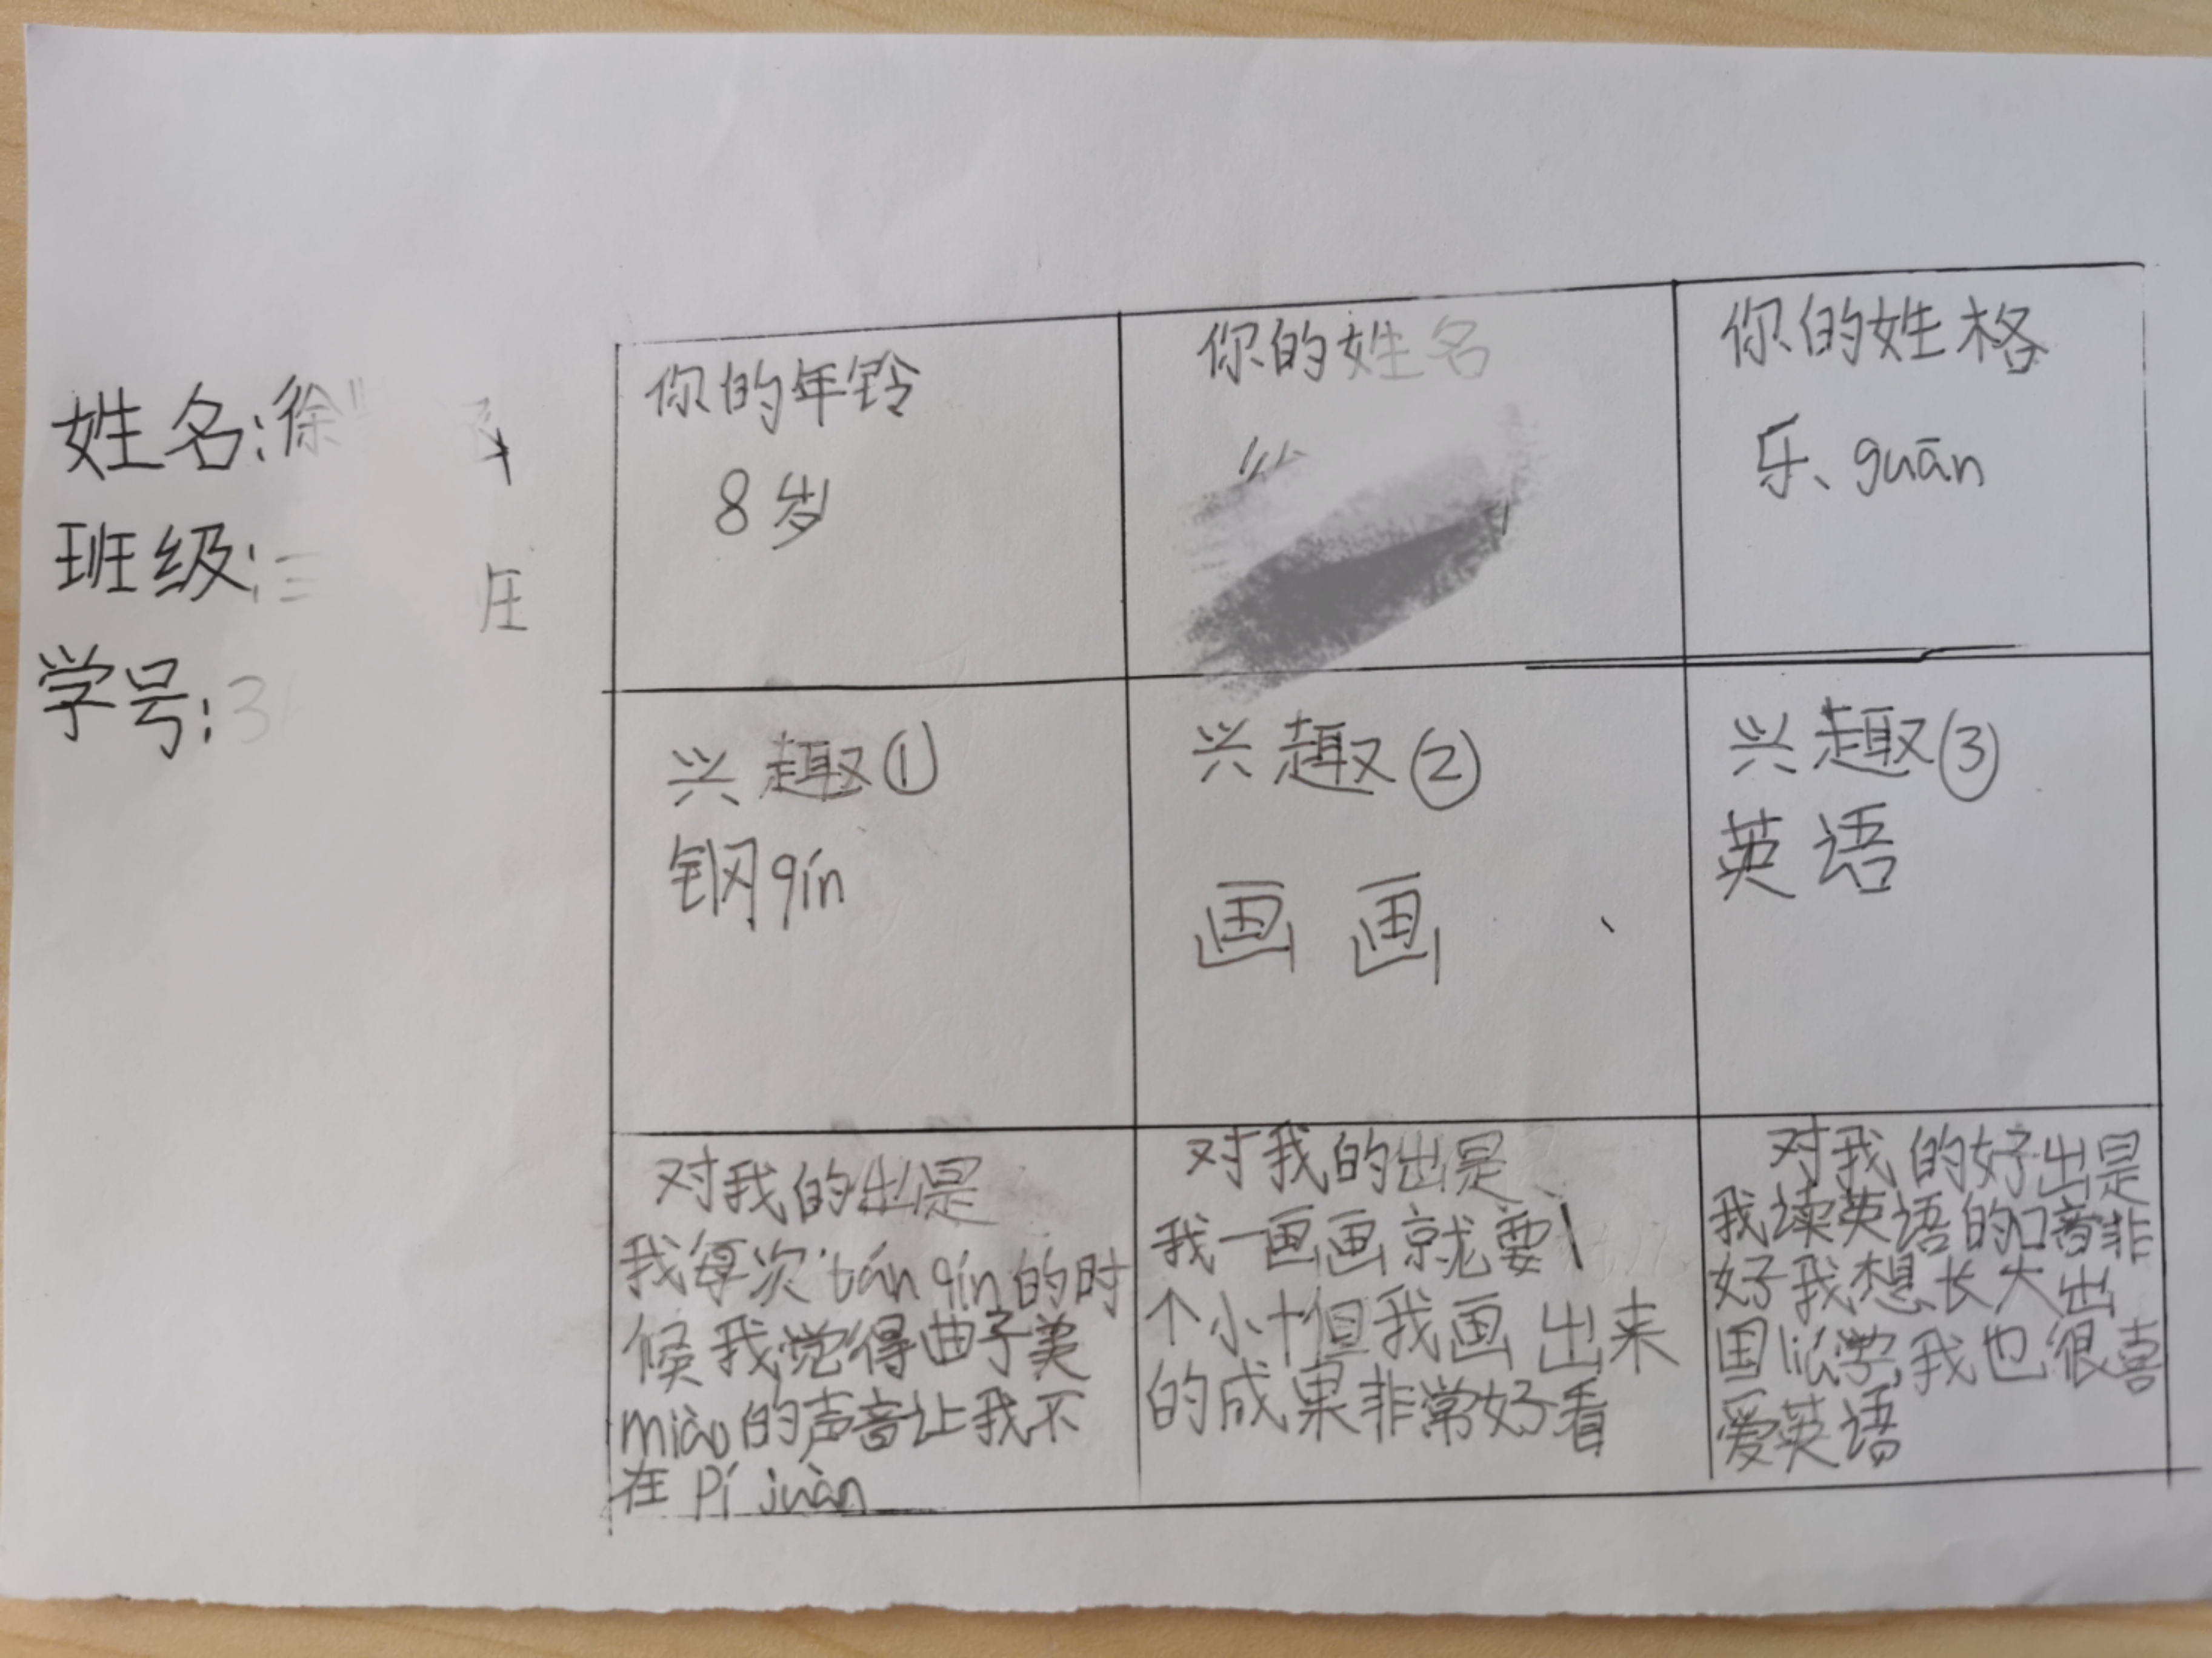 姓名:徐
班级:三
学号:3
你的年铃
8岁
你的姓名
你的姓格
乐guān
兴趣①
钢qín
兴趣②
画画
兴趣③
英语
对我的出是
我每次tán qín的时
候我觉得曲子美
miào的声音让我不
在pí juàn
对我的出是
我一画画就要1
个小十但我画出来
的成果非常好看
对我的好出是
我读英语的口音非
好我想长大出
国liú学我也很喜
爱英语